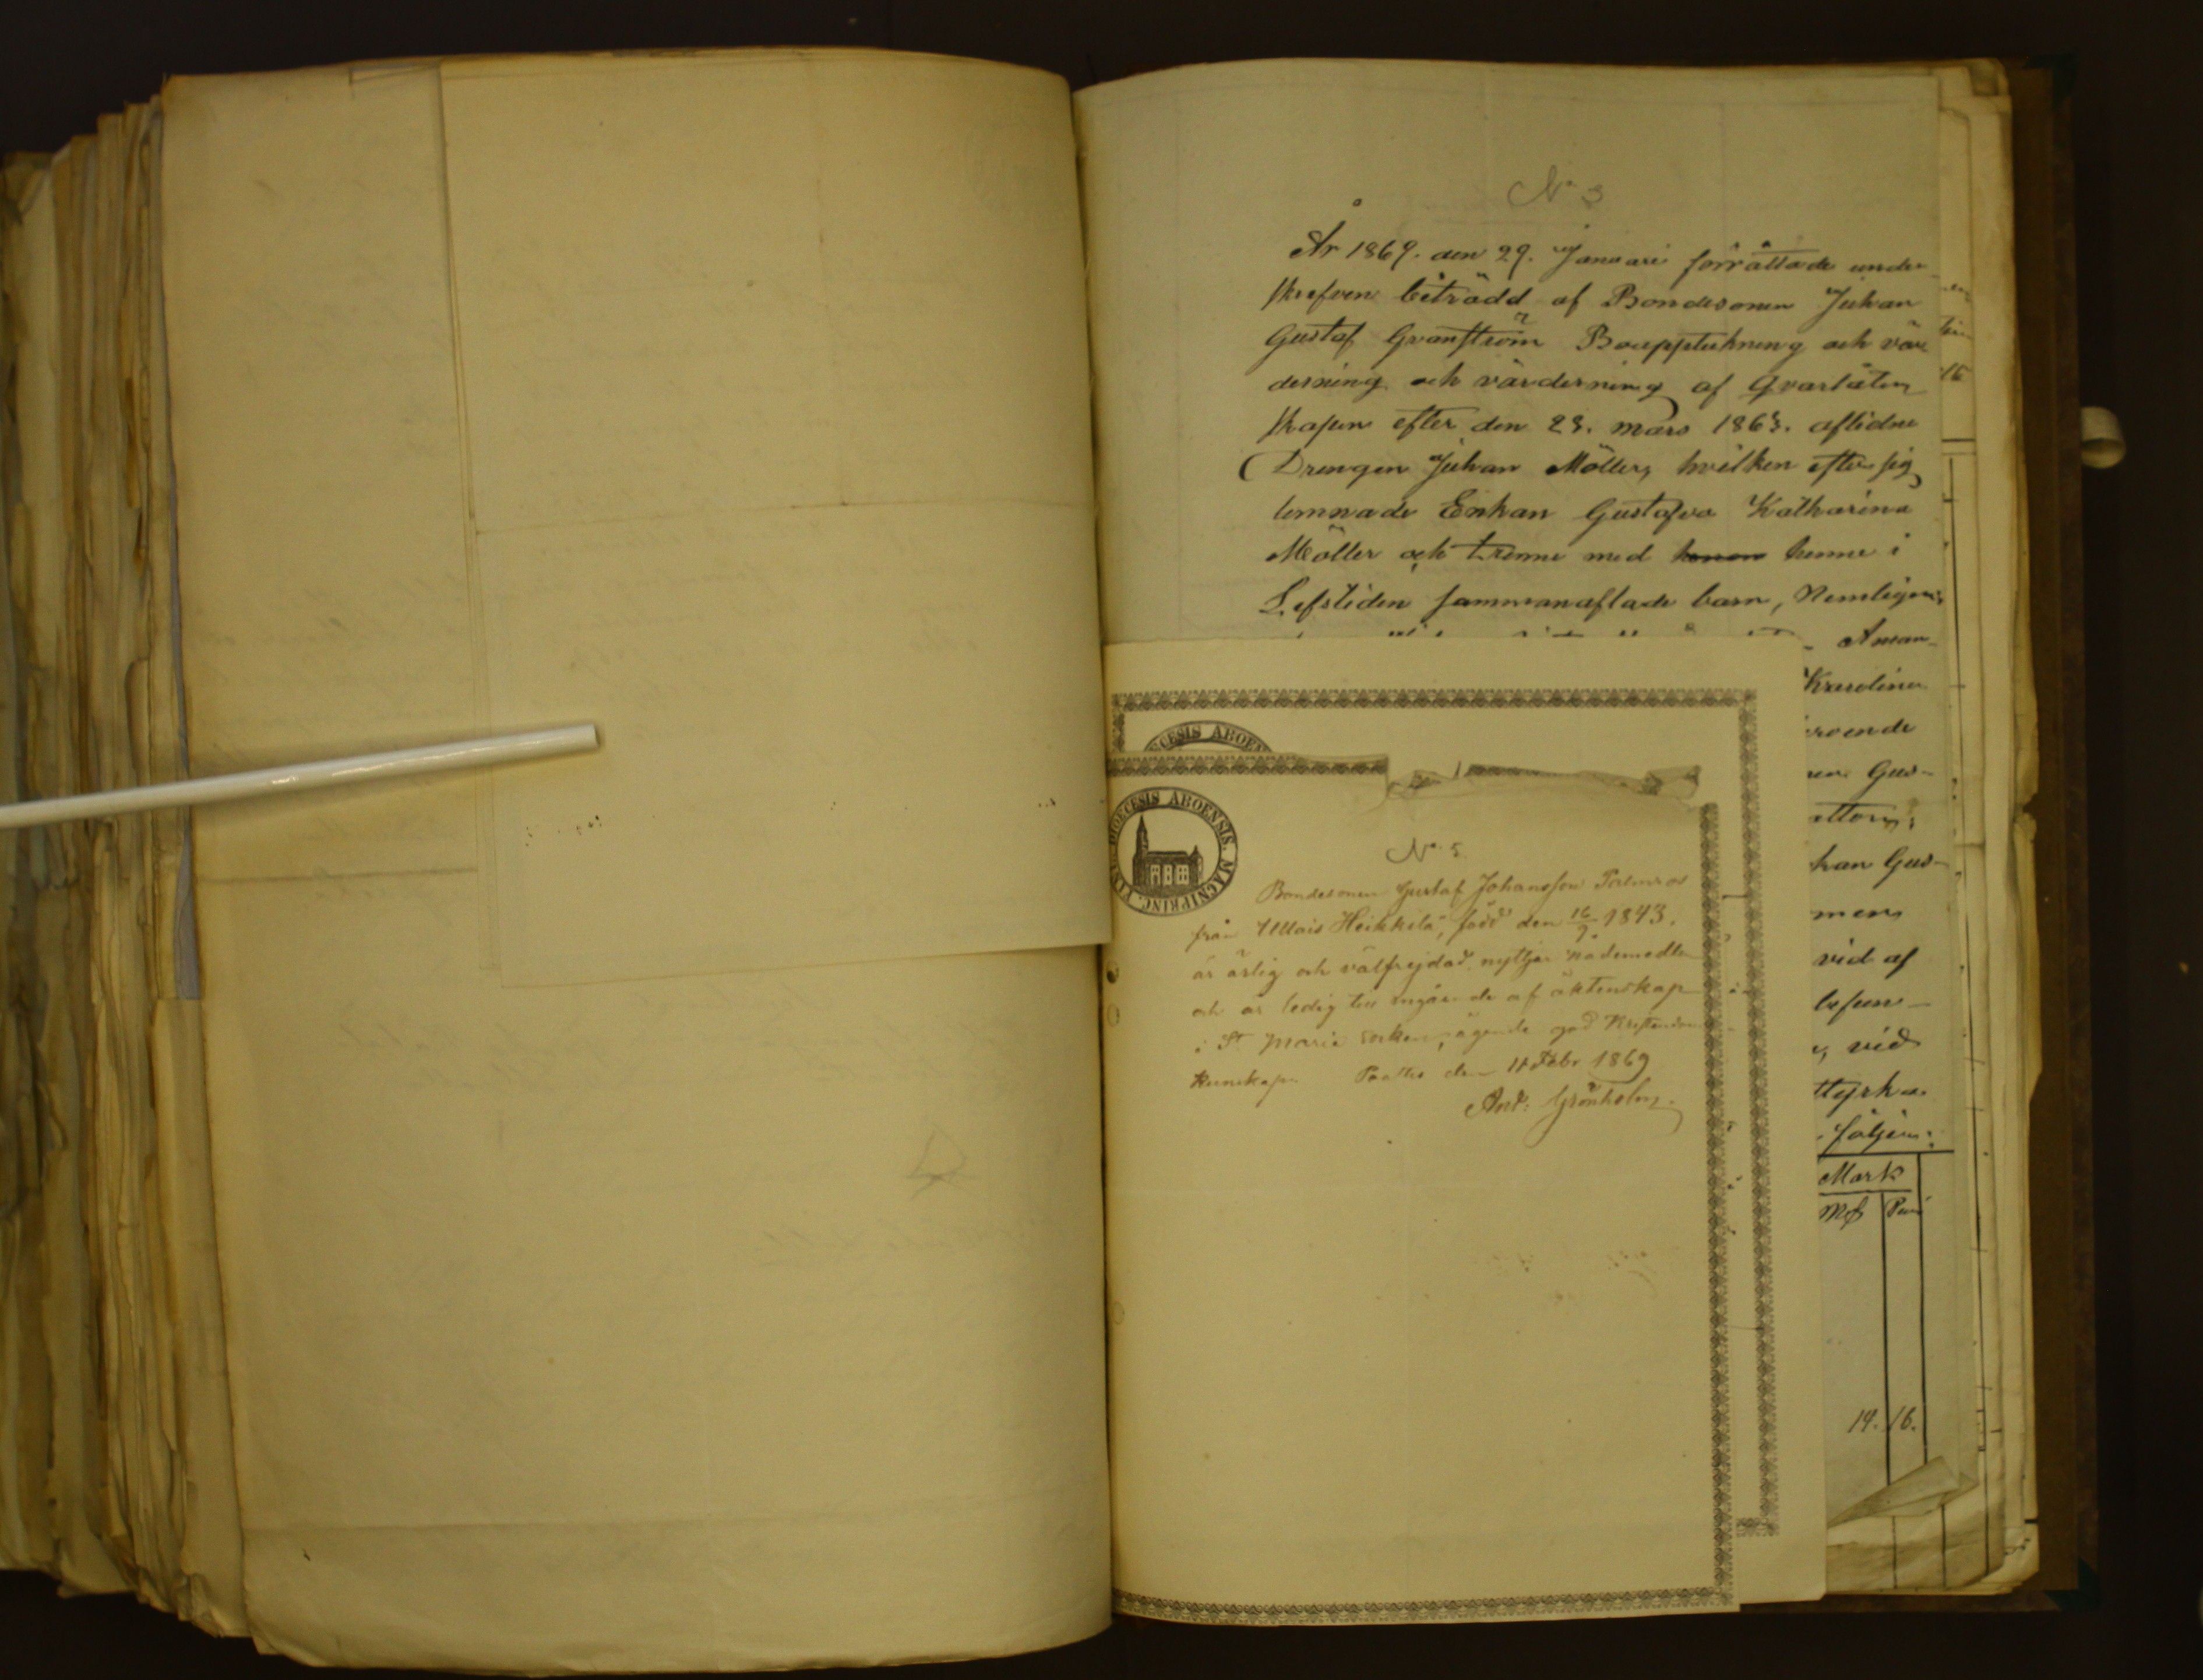 No 3
År 1869. den 29. Januari förrättade under
skrefven biträdd af Bondesonen Juhan
Gustaf Granström Boupptekning och vär
dering och värderning af Qvarlåten
skapen efter den 23. mars 1868. aflidne
Drengen Juhan Möller, hvilken efter sig
lemnade Enkan Gustafva Katharina
Möller och trenne med henne i
Lefstiden sammanaflade barn, Nemligen:
Aman-
Karolina
roende
Gus-
han Gus-
vid af
befun-
vid
styrka
följer:
Mark
Mk Pen
14. 16.
DIOECESIS ABOEN
DIOECESIS ABOENSIS. MAGNIPRINC. FINL.
No. 5.
Bondesonen Gustaf Johansson Palmros
från Ullais Heikkilä, född den 16/9 1843.
är ärlig och välfrejdad, nyttjar Nådemedlen
och är ledig till ingående af äktenskap
i St. Marie socken, ägande god Kristendoms
kunskap. Paattis den 11 Febr 1869
And: Grönholm.